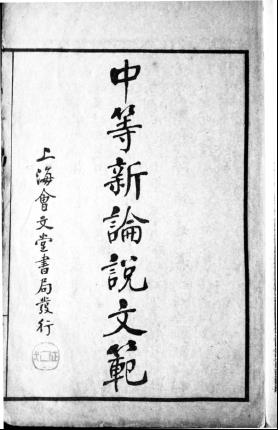 中等新論說文範
上海會文堂書局發行